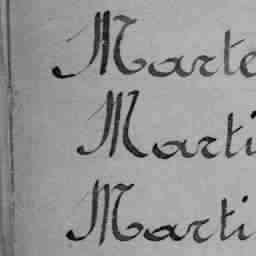 Marte
Marti
Marti